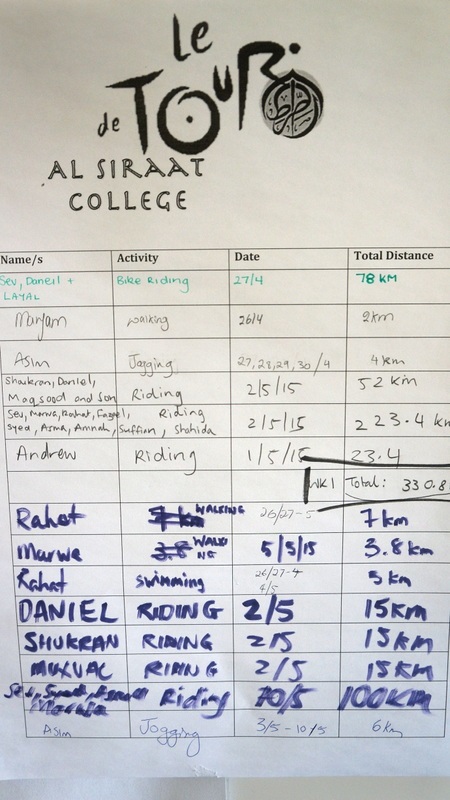 le
de TOUR
AL SIRAAT
COLLEGE
Name/s Activity Date Total Distance
Sev, Daneil + Bike Riding 27/4 78 KM
LAYAL
Maryam walking 26/4 2km
Asim Jogging 27,28,29,30/4 4km
Shaukran, Daniel, Riding 2/5/15 52 km
Maqsood and Son
Sev, Marwa, Rahat, Riding 2/5/15 223.4 km
Syed, Asma, Amnah, Suffian, Shahida
Andrew Riding 1/5/15 23.4
WK1 Total: 330.8
Rahat WALKING 26/27-5 7km
Marwe WALKI NG 5/5/15 3.8km
Rahat swimming 26/27-4 5km
4/5
DANIEL RIDING 2/5 15km
SHUKRAN RIDING 2/5 15km
RIDING 2/5 15km
Riding 10/5 100KM
Asim Jogging 3/5-10/5 6km